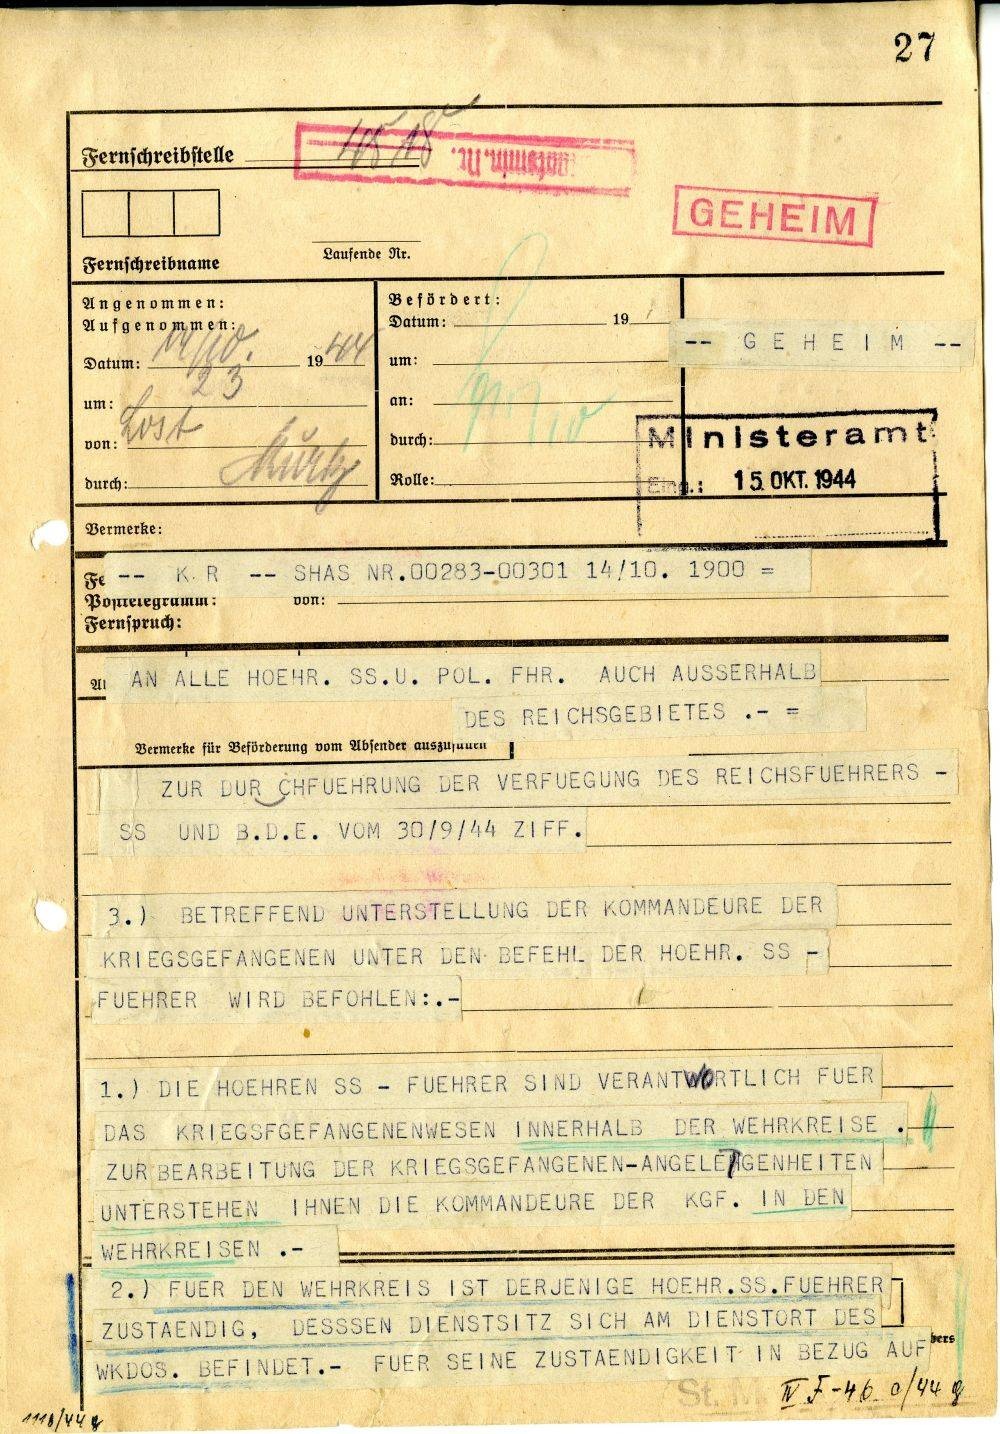 27
Fernschreibstelle
Staatsmin. Nr.
GEHEIM
Laufende Nr.
Fernschreibname
Angenommen:
Aufgenommen:
Datum: 14/10. 1944
um: 23
von: Lost
durch:
Befördert:
Datum: 19
um:
an:
durch:
Rolle:
-- GEHEIM --
Ministeramt
Eing.: 15. OKT. 1944
Vermerke:
-- K R -- SHAS NR.00283-00301 14/10. 1900 =
Posttelegramm: von:
Fernspruch:
AN ALLE HOEHR. SS.U. POL. FHR. AUCH AUSSERHALB
DES REICHSGEBIETES .- =
Vermerke für Beförderung vom Absender auszufüllen
ZUR DUR CHFUEHRUNG DER VERFUEGUNG DES REICHSFUEHRERS -
SS UND B.D.E. VOM 30/9/44 ZIFF.
3.) BETREFFEND UNTERSTELLUNG DER KOMMANDEURE DER
KRIEGSGEFANGENEN UNTER DEN BEFEHL DER HOEHR. SS -
FUEHRER WIRD BEFOHLEN:.-
1.) DIE HOEHREN SS - FUEHRER SIND VERANTWORTLICH FUER
DAS KRIEGSFGEFANGENENWESEN INNERHALB DER WEHRKREISE .
ZUR BEARBEITUNG DER KRIEGSGEFANGENEN-ANGELEGENHEITEN
UNTERSTEHEN IHNEN DIE KOMMANDEURE DER KGF. IN DEN
WEHRKREISEN .-
2.) FUER DEN WEHRKREIS IST DERJENIGE HOEHR.SS.FUEHRER
ZUSTAENDIG, DESSSEN DIENSTSITZ SICH AM DIENSTORT DES
WKDOS. BEFINDET.- FUER SEINE ZUSTAENDIGKEIT IN BEZUG AUF
St. M. IV J-46 c/44 g
1118/44 g